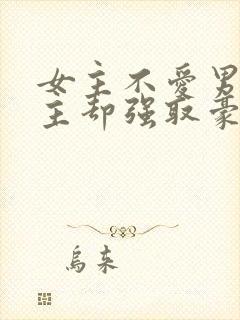 女主不愛男
主却强取豪
烏来